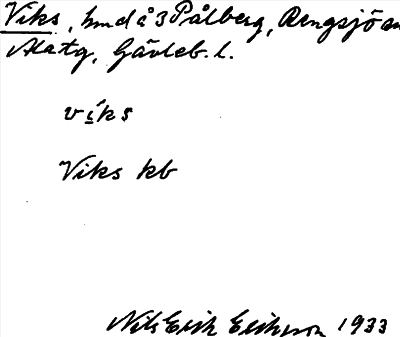 Viks, hmd å 3 Pålberg, Rengsjö sn
Alatg, Gävleb. l.
víks
Viks kb
Nils Erik Eriksson 1933